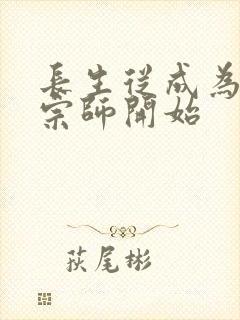 長生從成為
宗師開始
荻尾彬